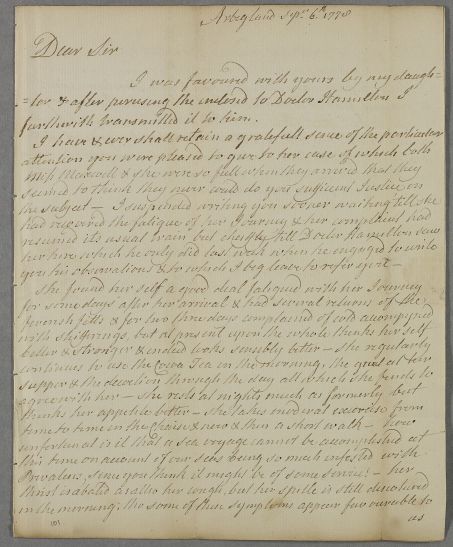 Arbigland Sepr. 6th. 1778
Dear Sir
I was favoured with yours by my daugh=
=ter & after perusing the inclosed to Doctor Hamilton I
furthwith transmitted it to him.
I have & ever shall retain a gratefull sence of the particular
attention you were pleased to give to her case of which both
Miss Maxwell & she were so full when they arrived that they
seemed to think they never could do you sufficient Justice on
the subject — I suspended writing you sooner waiting till she
had recovered the fatigue of her Journey & her complaint had
resumed its usual train, but chiefly till Doctor Hamilton saw
her here which he only did last week when he engaged to write
you his observations & to which I beg leave to refer
She found her self a good deal fatigued with her Journey
for some days after her arrival & had several returns of the
feverish fitts & for two three days complained of cold accompanied
with shiverings, but at present upon the whole thinks her self
better & stronger & indeed looks sensibly better — she regularly
continues to use the Tea in the morning, the at her
supper & the decoction through the day all which she finds to
agree with her — she rests at nights much as formerly but
thinks her appetite better — she takes moderat exercise from
time to time in the Chaise & now & then a short walk — how
unfortunat is it that a sea voyage cannot be accomplished at
this time on account of our seas being so much infested with
Privateers, since you think it might be of some service — her
thirst is abated as also her cough, but her spitle is still discoloured
in the morning, tho some of these symptoms appear favourable to
us
101